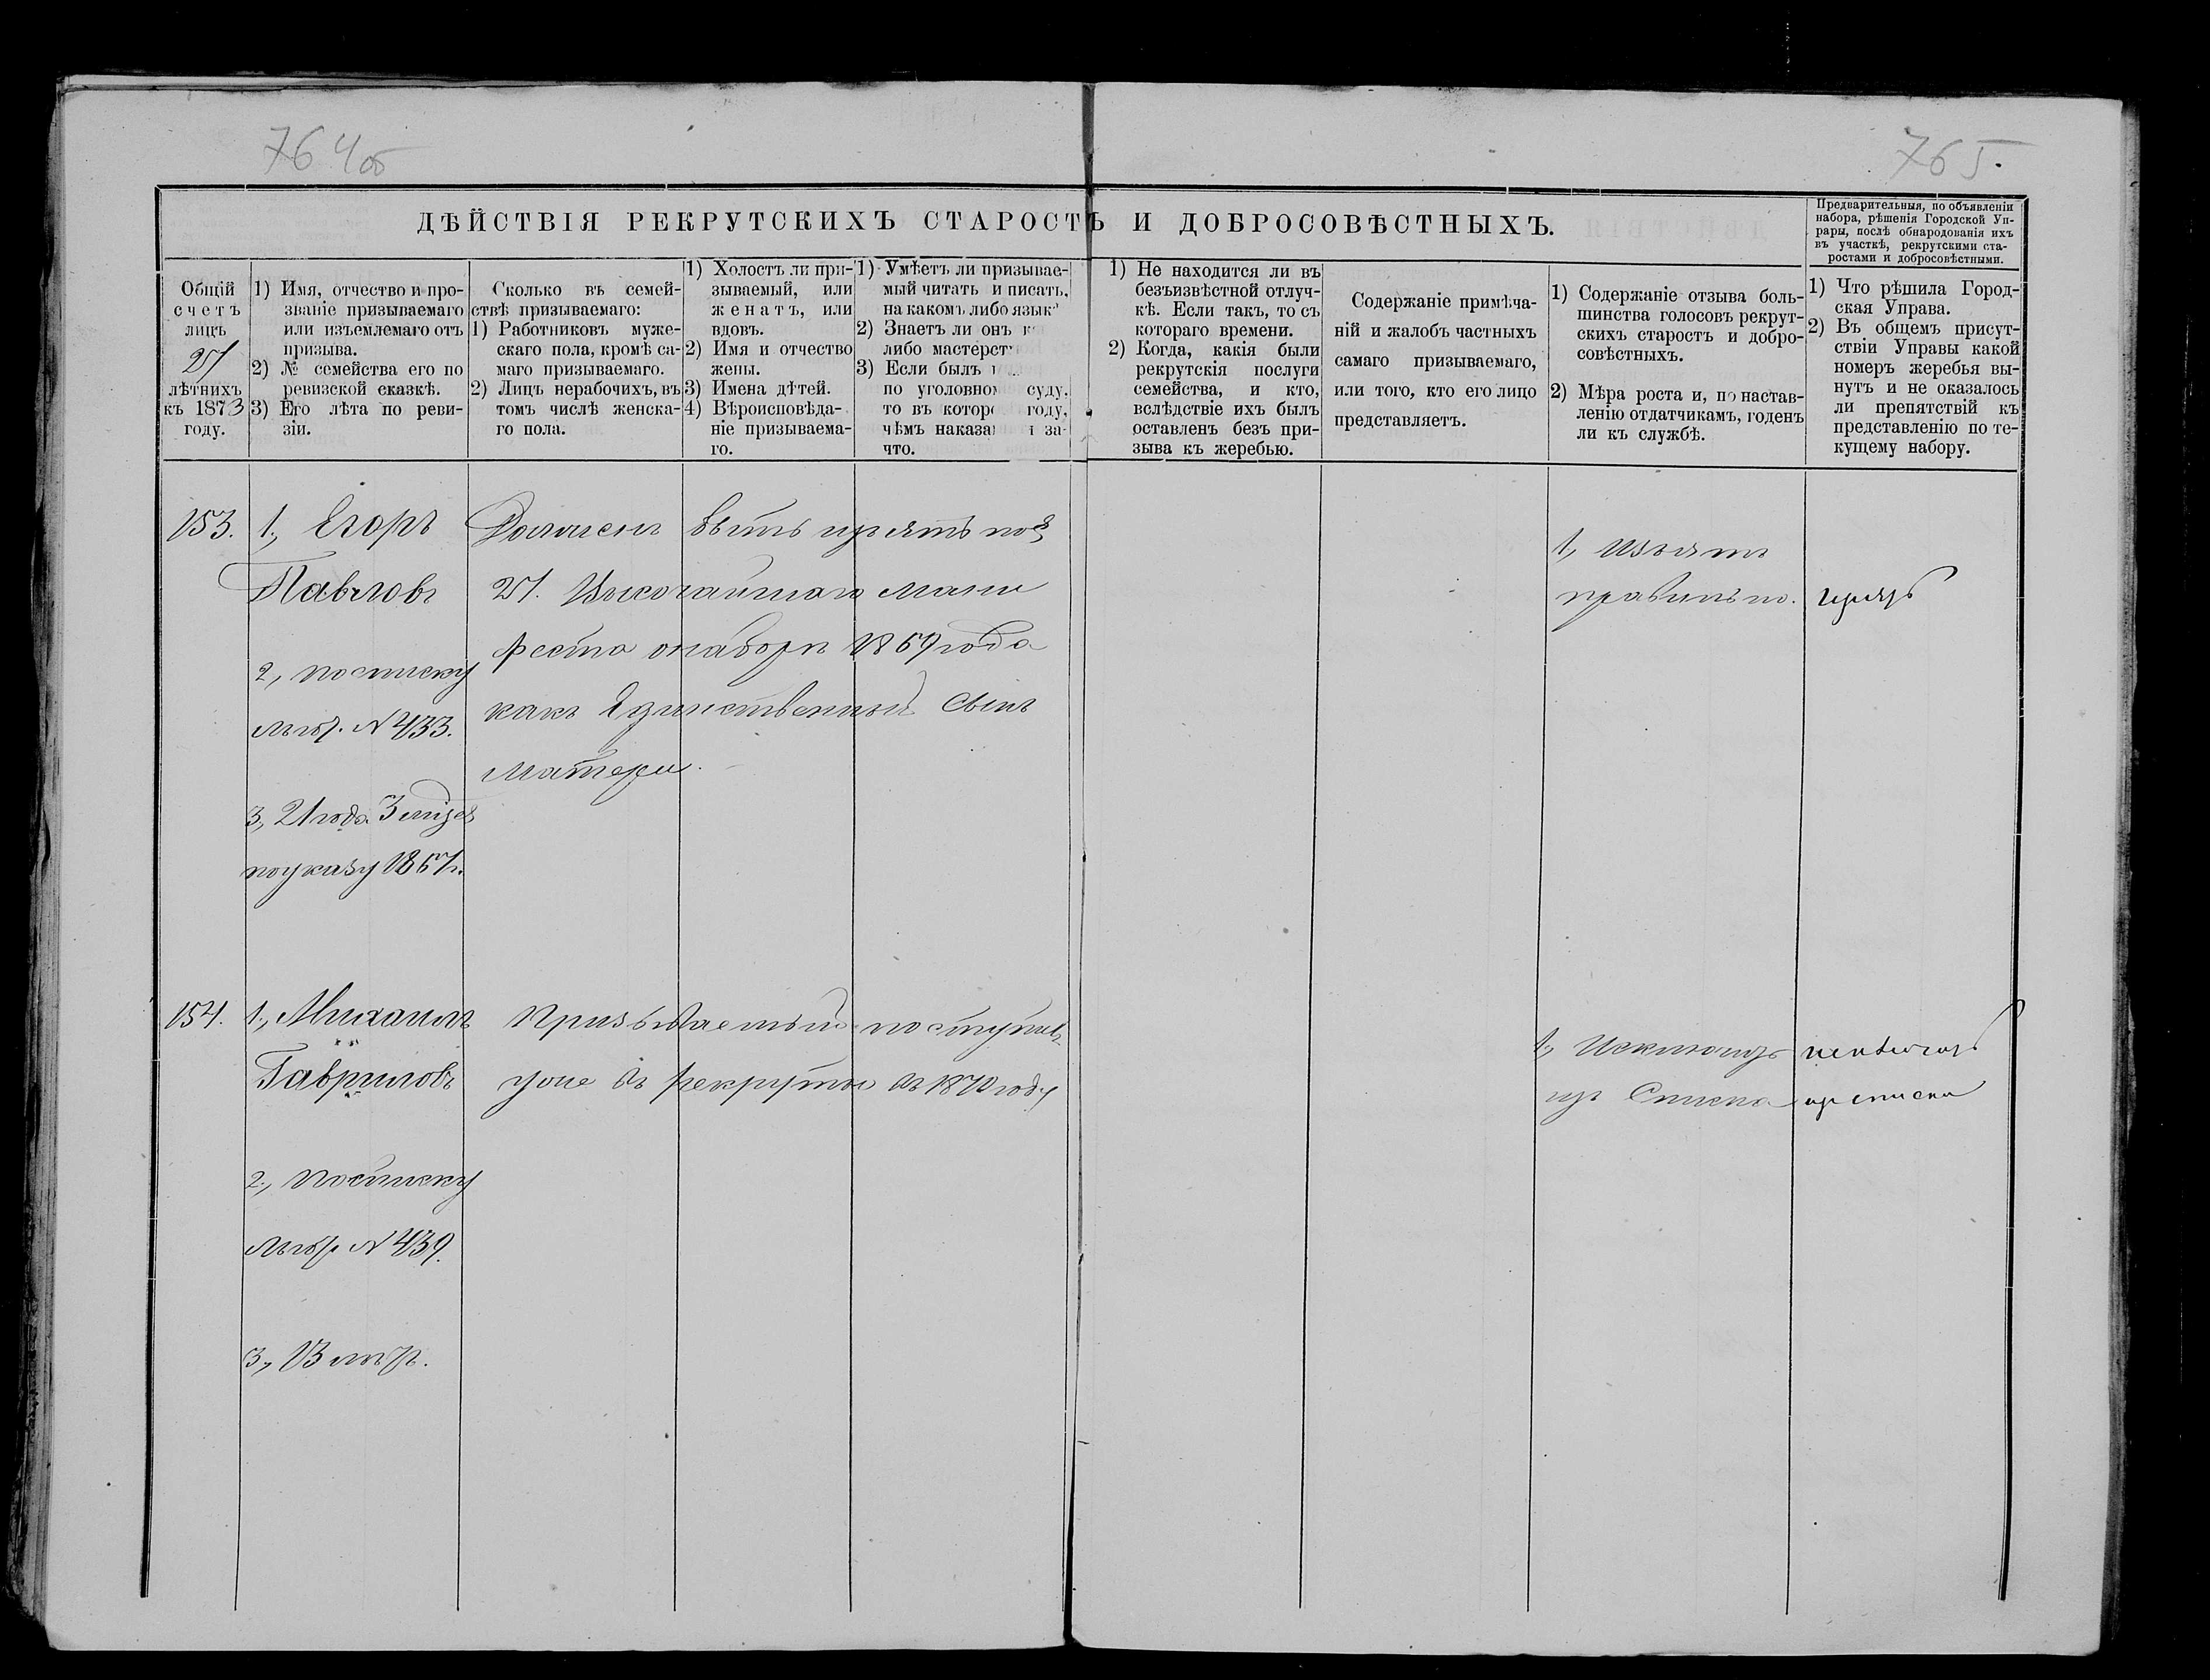 764об
765.
ДѢЙСТВІЯ РЕКРУТСКИХЪ СТАРОСТЪ И ДОБРОСОВѢСТНЫХЪ.
Предварительныя, по объявленіи
набора, рѣшенія Городской Уп-
равы, послѣ обнародованія ихъ
въ участкѣ, рекрутскими ста-
ростами и добросовѣстными.
Общій
счетъ
лицъ
21
лѣтнихъ
къ 1873
году.
1) Имя, отчество и про-
званіе призываемаго
или изъемлемаго отъ
призыва.
2) № семейства его по
ревизской сказкѣ.
3) Его лѣта по реви-
зіи.
Сколько въ семей-
ствѣ призываемаго:
1) Работниковъ муже-
скаго пола, кромѣ са-
маго призываемаго.
2) Лицъ нерабочихъ, въ
томъ числѣ женска-
го пола.
1) Холостъ ли при-
зываемый, или
женатъ, или
вдовъ.
2) Имя и отчество
жены.
3) Имена дѣтей.
4) Вѣроисповѣда-
ніе призываема-
го.
1) Умѣетъ ли призывае-
мый читать и писать,
на какомъ либо язык
2) Знаетъ ли онъ к
либо мастерст
3) Если былъ
по уголовно суду,
то въ котор году,
чѣмъ наказа и за
что.
1) Не находится ли въ
безъизвѣстной отлуч-
кѣ. Если такъ, то съ
котораго времени.
2) Когда, какія были
рекрутскія послуги
семейства, и кто,
вслѣдствіе ихъ былъ
оставленъ безъ при-
зыва къ жеребью.
Содержаніе примѣча-
ній и жалобъ частныхъ
самаго призываемаго,
или того, кто его лицо
представляетъ.
1) Содержаніе отзыва боль-
шинства голосовъ рекрут-
скихъ старостъ и добро-
совѣстныхъ.
2) Мѣра роста и, по настав-
ленію отдатчикамъ, годенъ
ли къ службѣ.
1) Что рѣшила Город-
ская Управа.
2) Въ общемъ присут-
ствіи Управы какой
номеръ жеребья вы-
нутъ и не оказалось
ли препятствій къ
представленію по те-
кущему набору.
153.
1, Егоръ
Павловъ
2, по списку
№ 433.
3, 21 года 3
по указу 1867г.
Долженъ быть изъятъ по §
21. Высочайшаго мани
феста о наборѣ 1869 года
какъ Единственный Сынъ
Матери.
1, Изъятъ
правильно.
154.
1, Михаилъ
Гавриловъ
2, По списку
№ 439.
3, 13 лѣтъ.
Призываемый поступилъ
уже въ рекруты въ 1870 году
1, Исключить
изъ Списка
исключить
изъ списка